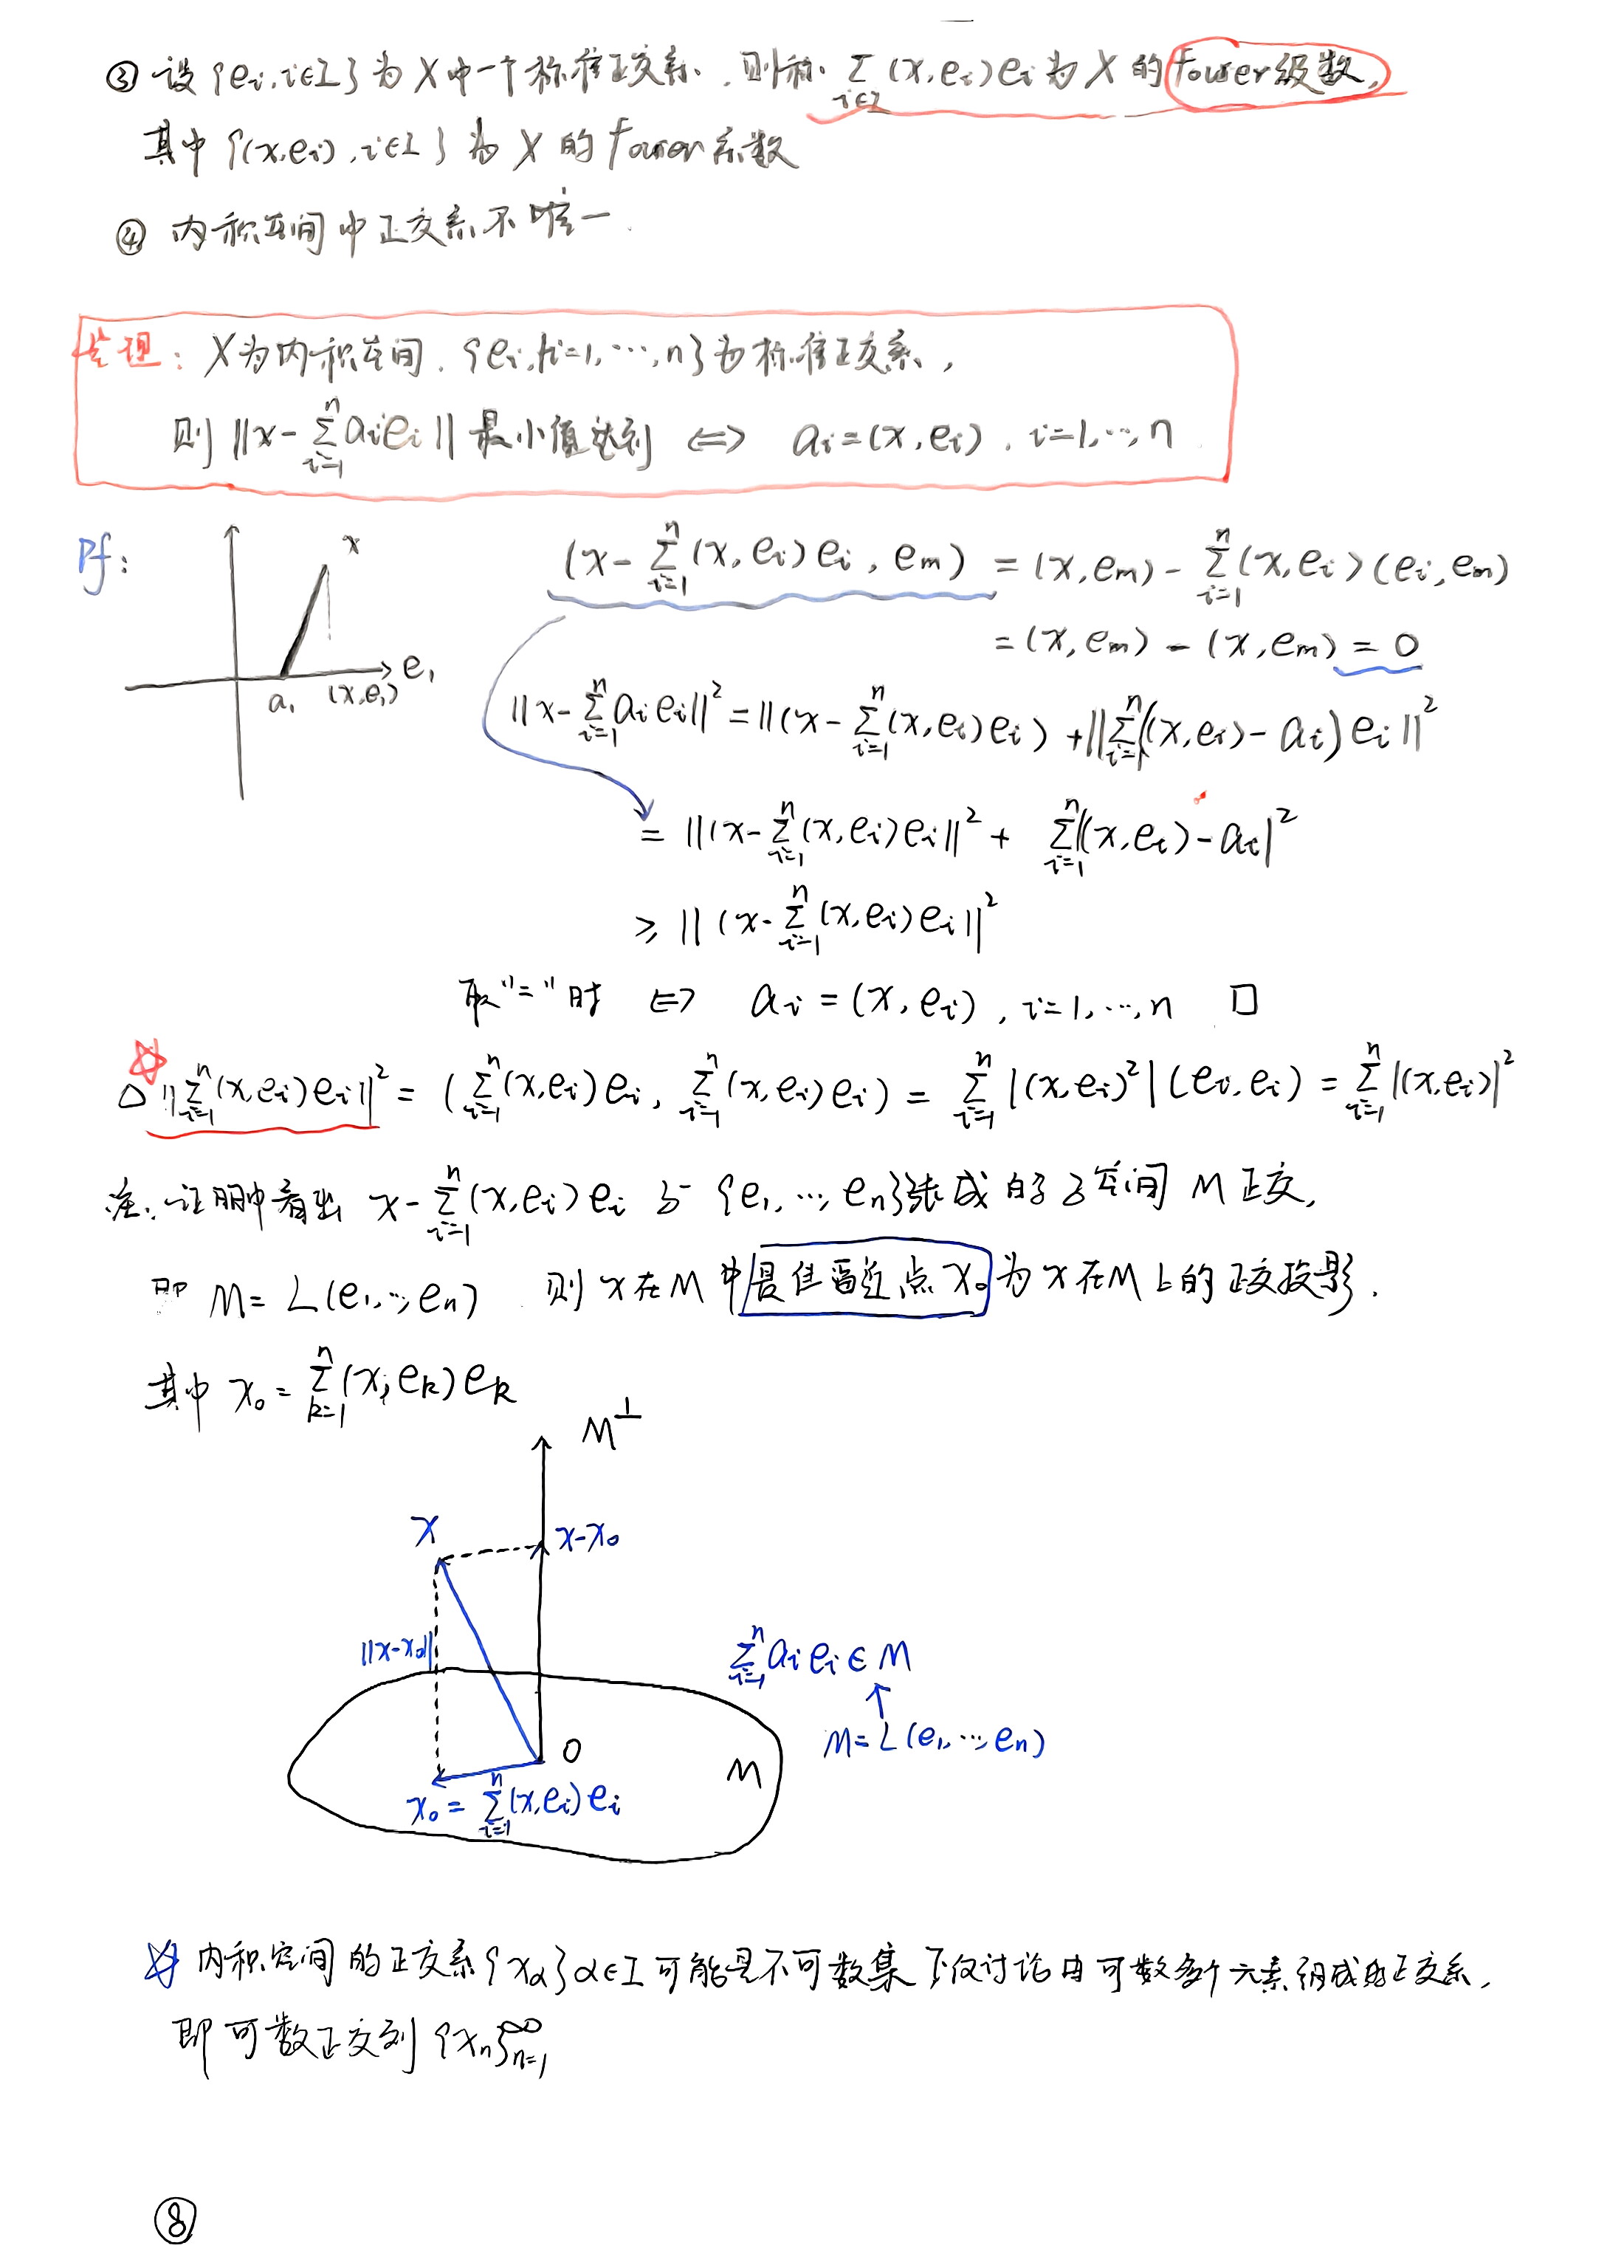 ③ 设{ei, i∈I}为X中一个标准正交系, 则称 ∑_{i∈I} (x,ei)ei 为X的fourer级数,
其中{(x,ei), i∈I}为X的fourer系数
④ 内积空间中正交系不唯一.
定理: X为内积空间. {ei, i=1,…,n}为标准正交系,
则 ||x-∑_{i=1}^{n} aiei|| 最小值达到 ⇔ ai=(x,ei), i=1,…,n
Pf:
x
e₁
a₁ (x,e₁)
(x-∑_{i=1}^{n}(x,ei)ei, em) = (x,em) - ∑_{i=1}^{n}(x,ei)(ei,em)
= (x,em) - (x,em) = 0
||x-∑_{i=1}^{n} aiei||² = ||(x-∑_{i=1}^{n}(x,ei)ei) + ||∑_{i=1}^{n}((x,ei)-ai)ei||²
= ||(x-∑_{i=1}^{n}(x,ei)ei||² + ∑_{i=1}^{n}|(x,ei)-ai|²
≥ ||(x-∑_{i=1}^{n}(x,ei)ei||²
取"="时 ⇔ ai=(x,ei), i=1,…,n □
△ ||∑_{i=1}^{n}(x,ei)ei||² = (∑_{i=1}^{n}(x,ei)ei, ∑_{i=1}^{n}(x,ei)ei) = ∑_{i=1}^{n}|(x,ei)²|(ei,ei) = ∑_{i=1}^{n}|(x,ei)|²
注: 证明中看出 x-∑_{i=1}^{n}(x,ei)ei 与 {e₁,…,en}张成的子空间M正交,
即 M=L(e₁,…,en) 则x在M中最佳逼近点x₀为x在M上的正交投影.
其中 x₀=∑_{k=1}^{n}(x,ek)ek
M⊥
x
x-x₀
||x-x₀||
∑_{i=1}^{n} aiei∈M
↑
M=L(e₁,…,en)
O
M
x₀=∑_{i=1}^{n}(x,ei)ei
☆ 内积空间的正交系{xα}α∈I可能是不可数集 下仅讨论由可数多个元素组成的正交系,
即可数正交列{xn}_{n=1}^{∞}
⑧